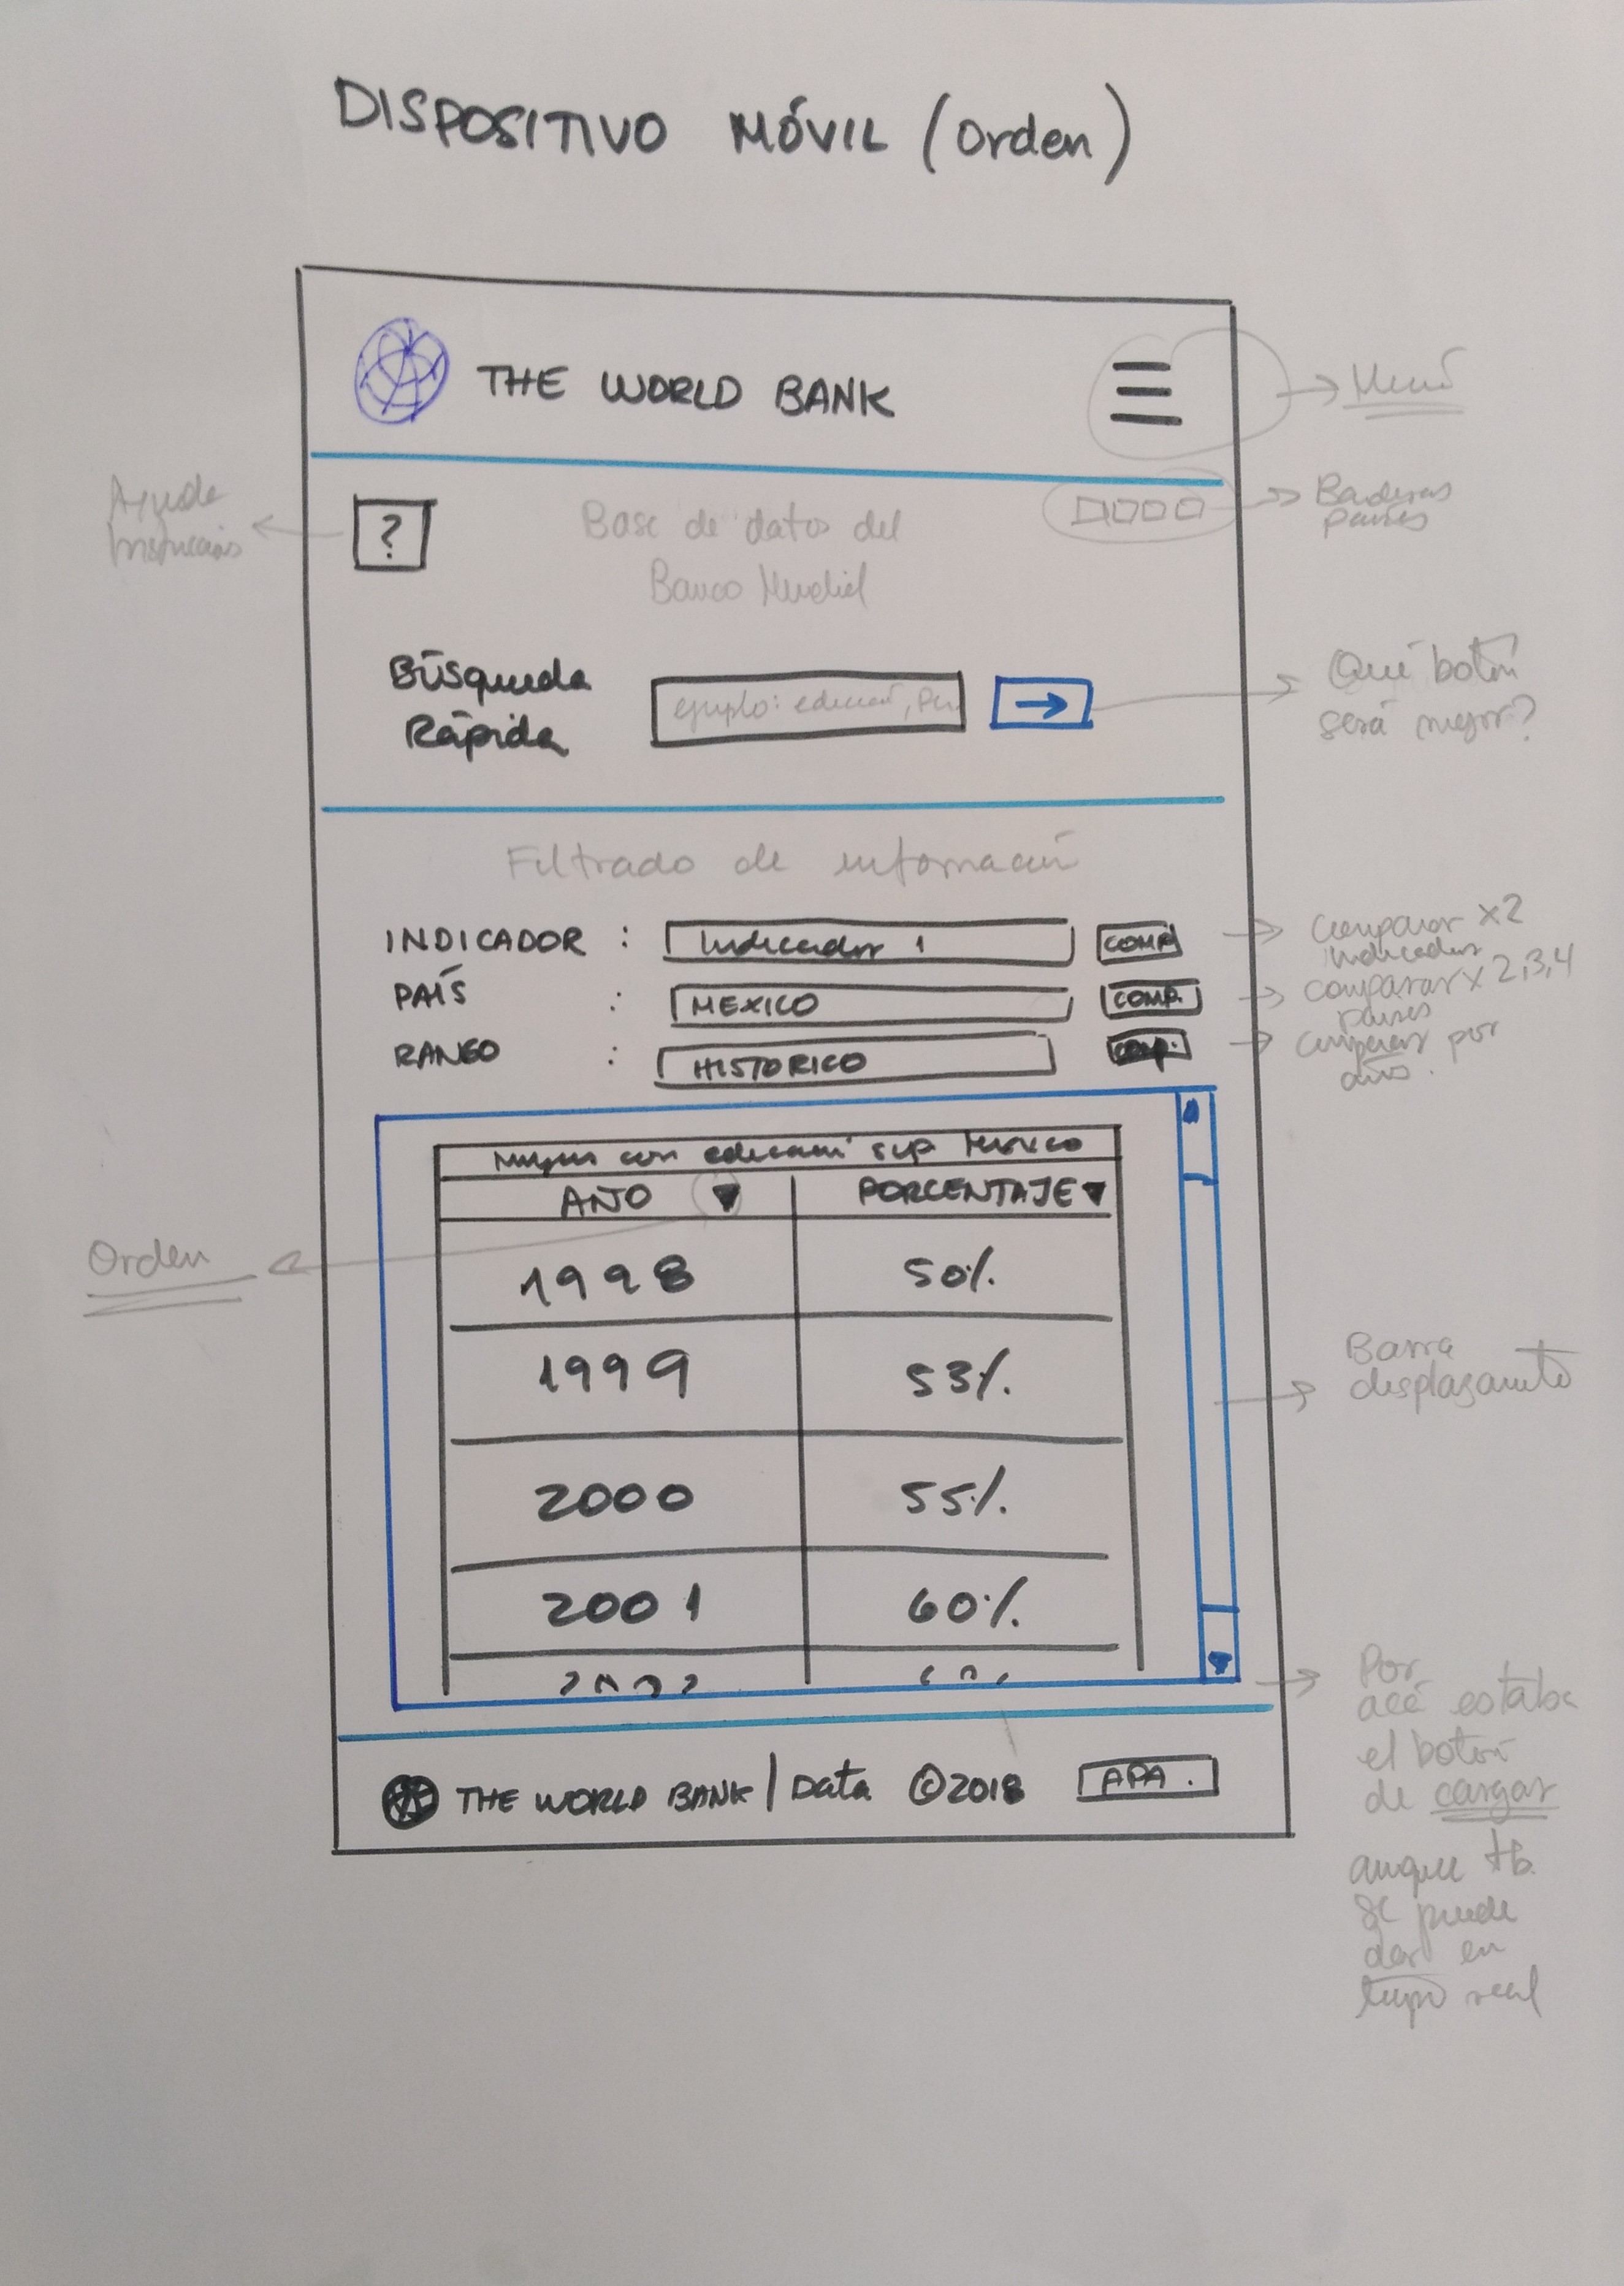 DISPOSITIVO MÓVIL (Orden)
THE WORLD BANK
Menú
Ayuda
?
Base de datos del
Banco Mundial
Banderas
países
Búsqueda
Rápida
ejemplo: educación, Per
→
Qué botón
será mejor?
Filtrado de información
INDICADOR : Indicador 1 COMP.
comparar x2
indicador
PAÍS : MEXICO COMP.
comparar x 2,3,4
países
RANGO : HISTORICO COMP.
comparar por
años.
Mujeres con educación sup México
AÑO ▼ PORCENTAJE ▼
Orden
1998 50%
1999 53%
2000 55%
2001 60%
Barra
desplazamiento
THE WORLD BANK | Data ©2018 APA.
Por
acá estaba
el botón
de cargar
aunque tb.
se puede
dar en
tiempo real